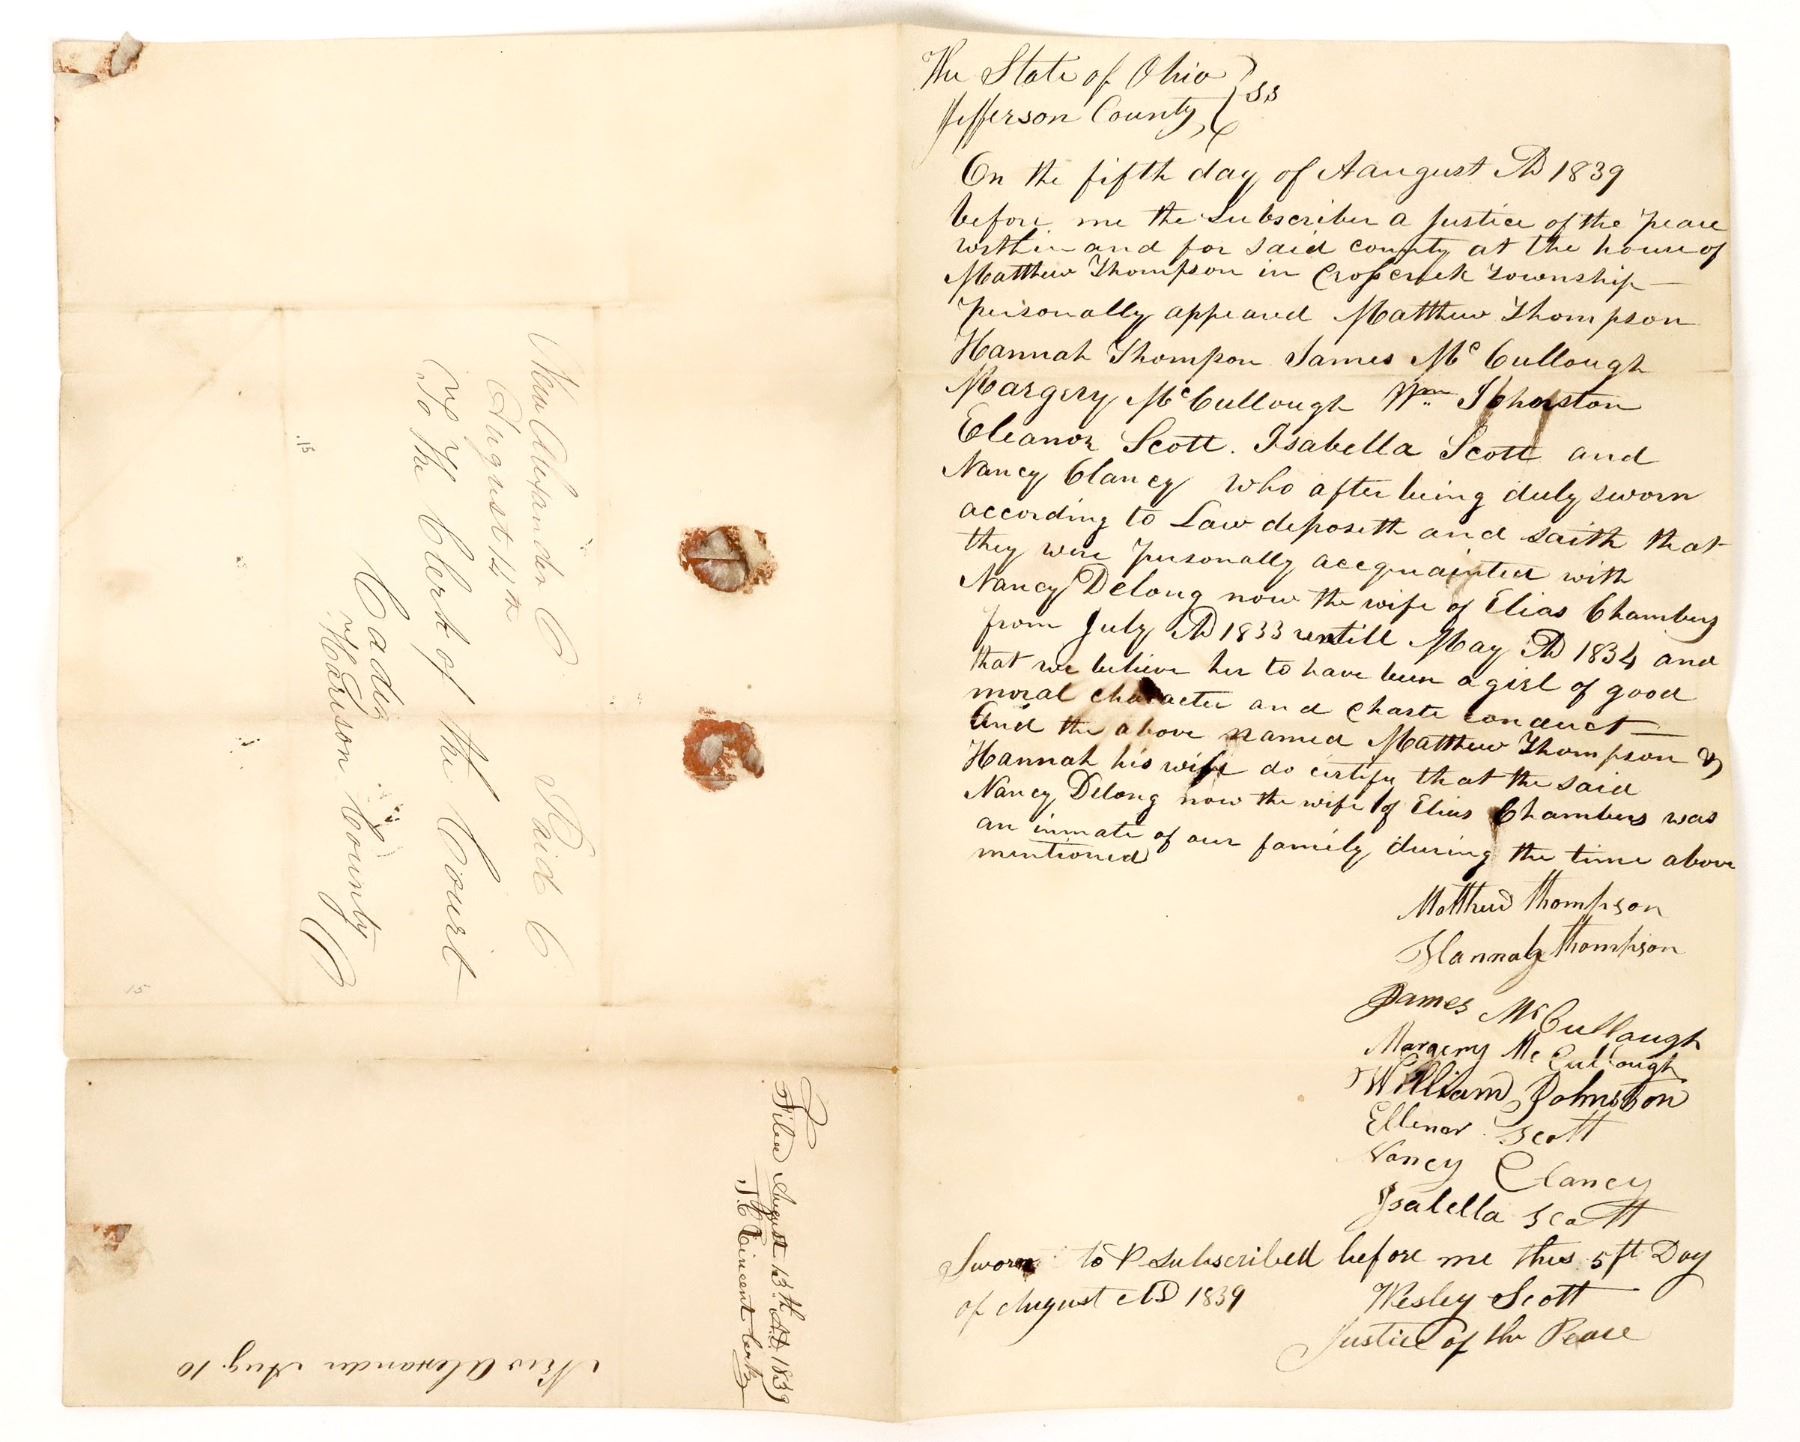 The State of Ohio } ss
Jefferson County, }
On the fifth day of Aaugust AD 1839
before me the subscriber a Justice of the peace
within and for said county at the house of
Matthew Thompson in Crosscreek Township—
personally appeared Matthew Thompson
Hannah Thompson James McCullough
Margery McCullough Wm Johnston
Eleanor Scott. Isabella Scott and
Nancy Clancy who after being duly sworn
according to Law deposeth and saith that
they were personally accquainted with
Nancy Delong now the wife of Elias Chambers
from July AD 1833 untill May AD 1834 and
that we believe her to have been a girl of good
moral character and chaste conduct—
And the above named Matthew Thompson &
Hannah his wife do certify that the said
Nancy Delong now the wife of Elias Chambers was
an inmate of our family during the time above
mentioned
Matthew Thompson
Hannah Thompson
James McCullaugh
Margery McCullough
William Johnston
Ellenor Scott
Nancy Clancy
Isabella Scott
Sworn to & subscribed before me this 5ft Day
of August AD 1839
Wesley Scott
Justice of the Peace
New Alexander O
August 14th
Paid 6
To the Clerk of the Court
Cadiz
Harrison County
O
.15
15
Filed August 13th AD. 1839
Vincent Clerk
New Alexander Aug. 10